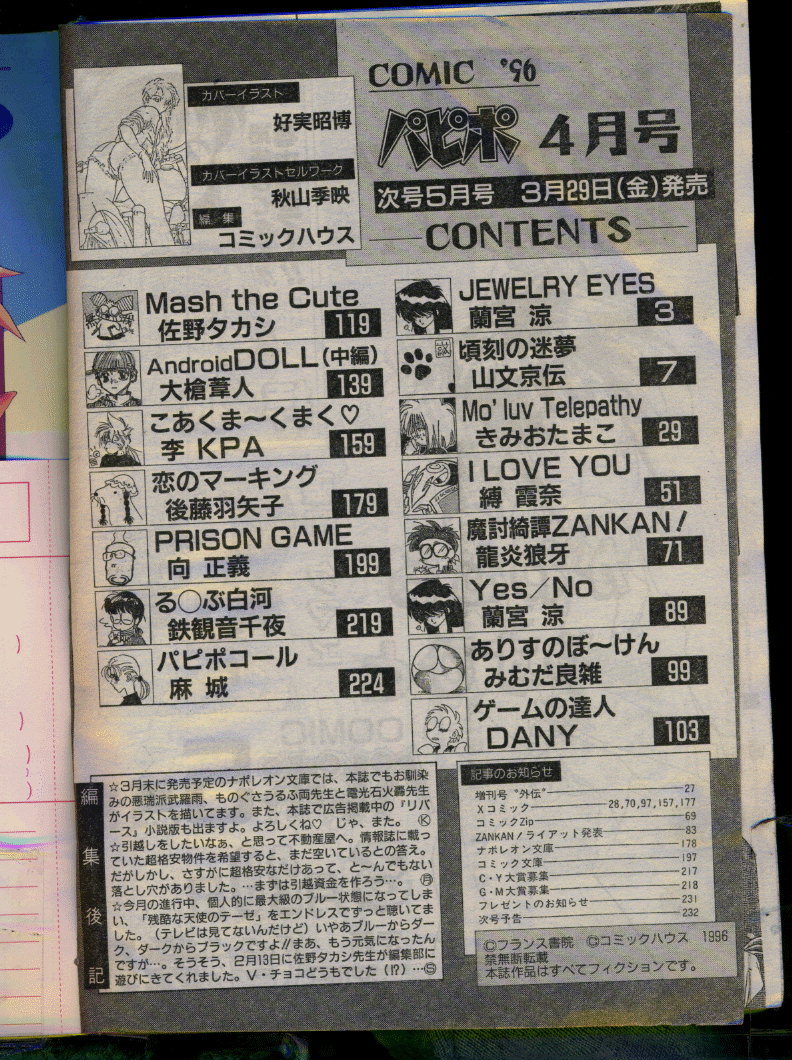 COMIC '95
パピポ 4月号
次号5月号 3月29日(金)発売
CONTENTS
カバーイラスト
好実昭博
カバーイラストセルワーク
秋山季映
編集
コミックハウス
JEWELRY EYES
蘭宮 涼 3
頃刻の迷夢
山文京伝 7
Mo' luv Telepathy
きみおたまこ 29
I LOVE YOU
縛 霞奈 51
魔討綺譚ZANKAN!
龍炎狼牙 71
Yes/No
蘭宮 涼 89
ありすのぼ〜けん
みむだ良雑 99
ゲームの達人
DANY 103
Mash the Cute
佐野タカシ 119
AndroidDOLL(中編)
大槍葦人 139
こあくま〜くまく♡
李 KPA 159
恋のマーキング
後藤羽矢子 179
PRISON GAME
向 正義 199
る○ぶ白河
鉄観音千夜 219
パピポコール
麻 城 224
編集後記
☆3月末に発売予定のナポレオン文庫では、本誌でもお馴染
みの悪瑞派武羅雨、ものぐさうるふ両先生と電光石火轟先生
がイラストを描いてます。また、本誌で広告掲載中の『リバ
ース』小説版も出ますよ。よろしくね♡ じゃ、また。 Ⓚ
☆引越しをしたいなぁ、と思って不動産屋へ。情報誌に載っ
ていた超格安物件を希望すると、まだ空いているとの答え。
だがしかし、さすがに超格安なだけあって、と〜んでもない
落とし穴がありました。…まずは引越資金を作ろう…。 ㊊
☆今月の進行中、個人的に最大級のブルー状態になってしま
い、「残酷な天使のテーゼ」をエンドレスでずっと聴いてま
した。(テレビは見てないんだけど)いやあブルーからダー
ク、ダークからブラックですよ//まあ、もう元気になったん
ですが…。そうそう、2月13日に佐野タカシ先生が編集部に
遊びにきてくれました。V・チョコどうもでした(!?)…Ⓢ
記事のお知らせ
増刊号"外伝" 27
Xコミック 28,70,97,157,177
コミックZip 69
ZANKAN!ライアット発表 83
ナポレオン文庫 178
コミック文庫 197
C・Y大賞募集 217
G・M大賞募集 218
プレゼントのお知らせ 231
次号予告 232
©フランス書院 ©コミックハウス 1996
禁無断転載
本誌作品はすべてフィクションです。